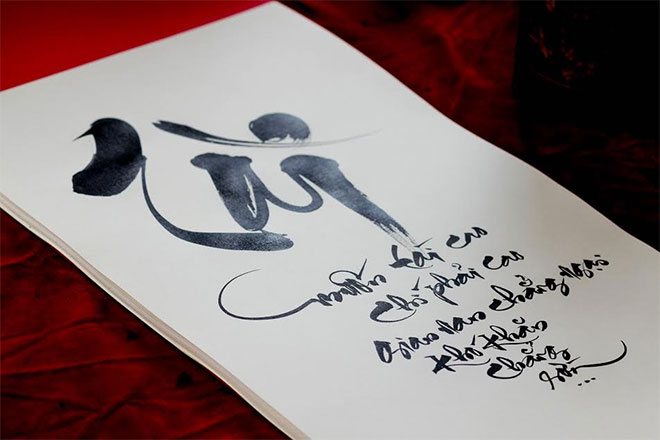 tài cao
chí phải cao
gian nan chẳng ngại
khó khăn
chẳng
sờn...